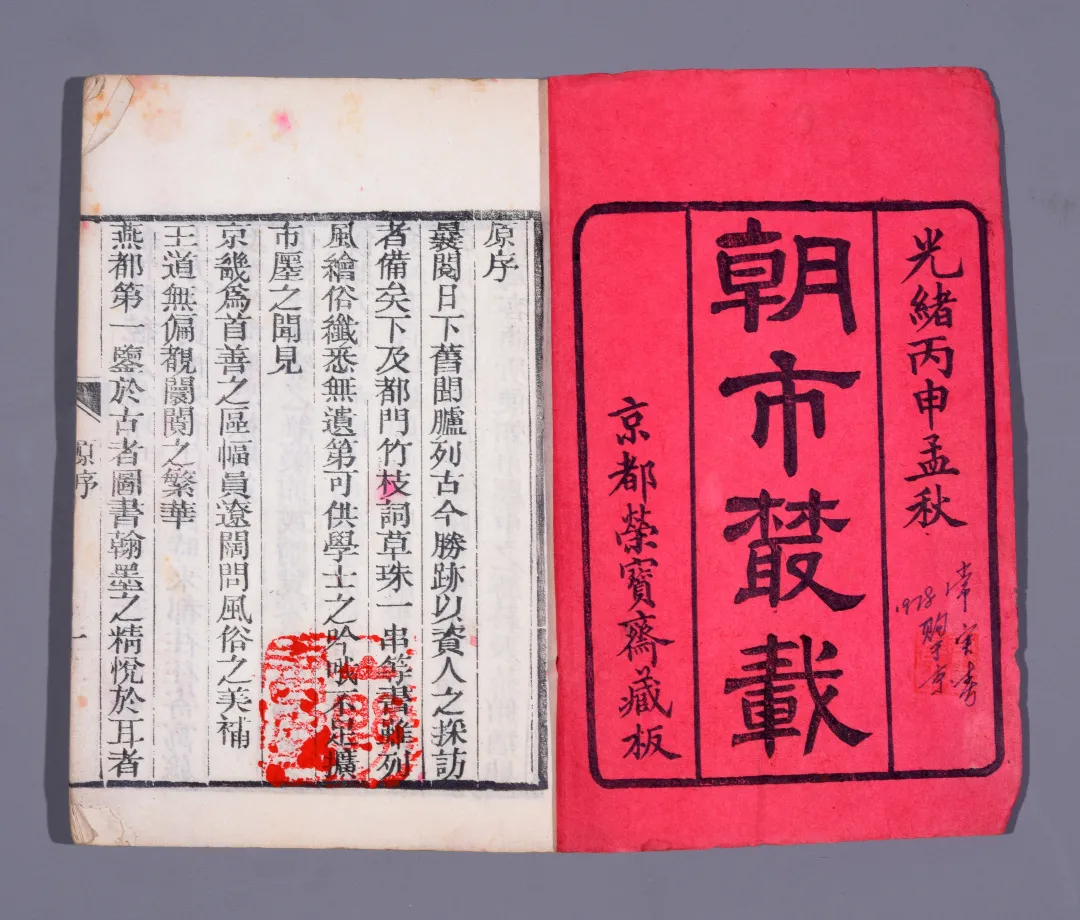 光緒丙申孟秋
朝市叢載
京都榮寶齋藏板
1978
原序
曩閱日下舊聞臚列古今勝跡以資人之採訪
者備矣下及都門竹枝詞草珠一串等書雖列
風繪俗纖悉無遺第可供學士之吟哦不足擴
市廛之聞見
京畿為首善之區幅員遼闊問風俗之美補
王道無偏觀闤闠之繁華
燕都第一鑒於古者圖書翰墨之精悅於耳者
原序
一